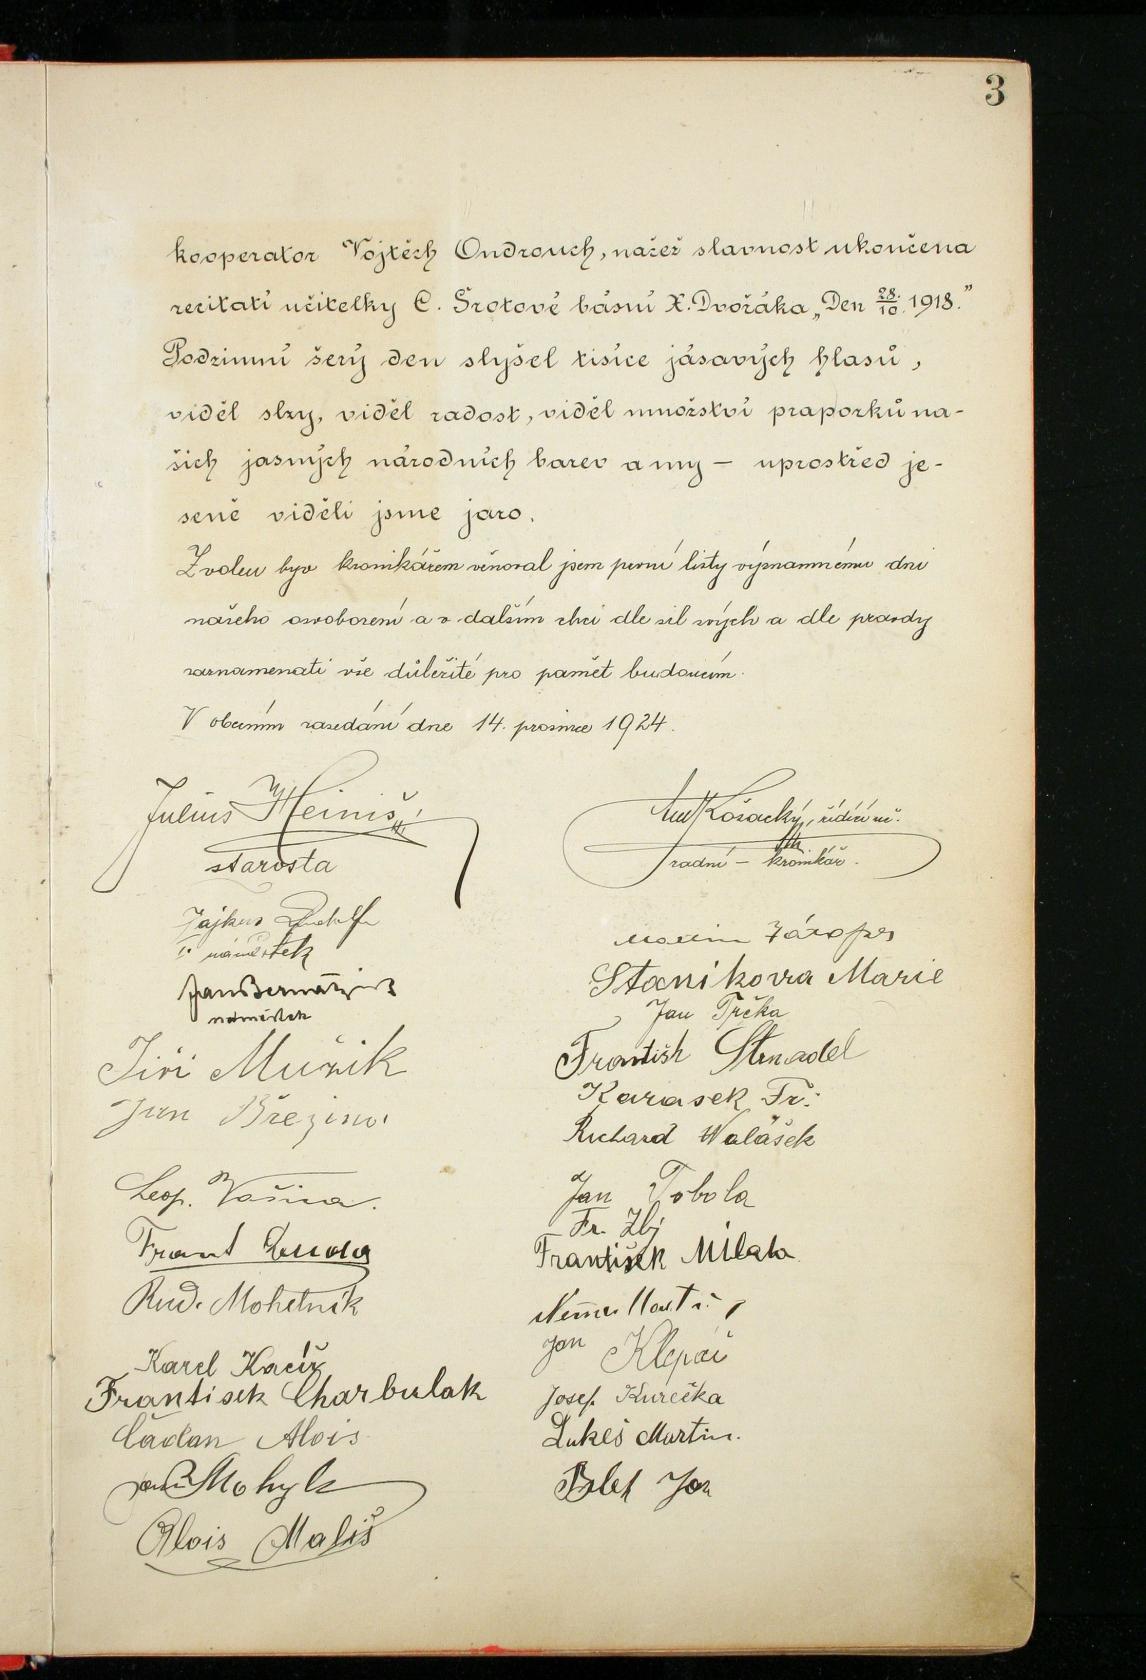 3
kooperator Vojtěch Ondrouch, načež slavnost ukončena
recitatí učitelky C. Šrotové básní X. Dvořáka „Den 28./10. 1918.”
Podzimní šerý den slyšel tisíce jásavých hlasů,
viděl slzy, viděl radost, viděl množství praporků na-
šich jasných národních barev a my – uprostřed je-
seně viděli jsme jaro.
Zvolen byv kronikářem věnoval jsem první listy významnému dni
našeho osvobození a v dalším chci dle sil svých a dle pravdy
zaznamenati vše důležité pro paměť budoucím.
V obecním zasedání dne 14. prosince 1924.
Julius Heiniš
starosta
Košacký, řídící uč.
radní – kronikář.
Jajkus Rudolf
náměstek
náměstek
Jiří Mužik
Jan Březina
Leop. Vašica.
Frant Duda
Rud. Mohelník
Karel Kacíř
Frantisek Charbulak
Čadan Alois
Mohyla
Alois Mališ
Stanikovra Marie
Jan Trčka
Františk Strnadel
Karasek Fr.
Richard Walášek
Jan Tobola
Fr.
František Milata
Jan Klepáč
Josef Kurečka
Lukeš Martin.
Jan